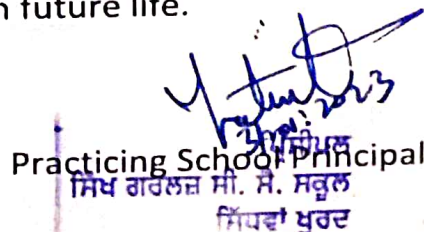 n future life.
2023
Practicing School Principal
ਸਿੱਖ ਗਰਲਜ਼ ਸੀ. ਸੈ. ਸਕੂਲ
ਸਿੱਧਵਾਂ ਖੁਰਦ